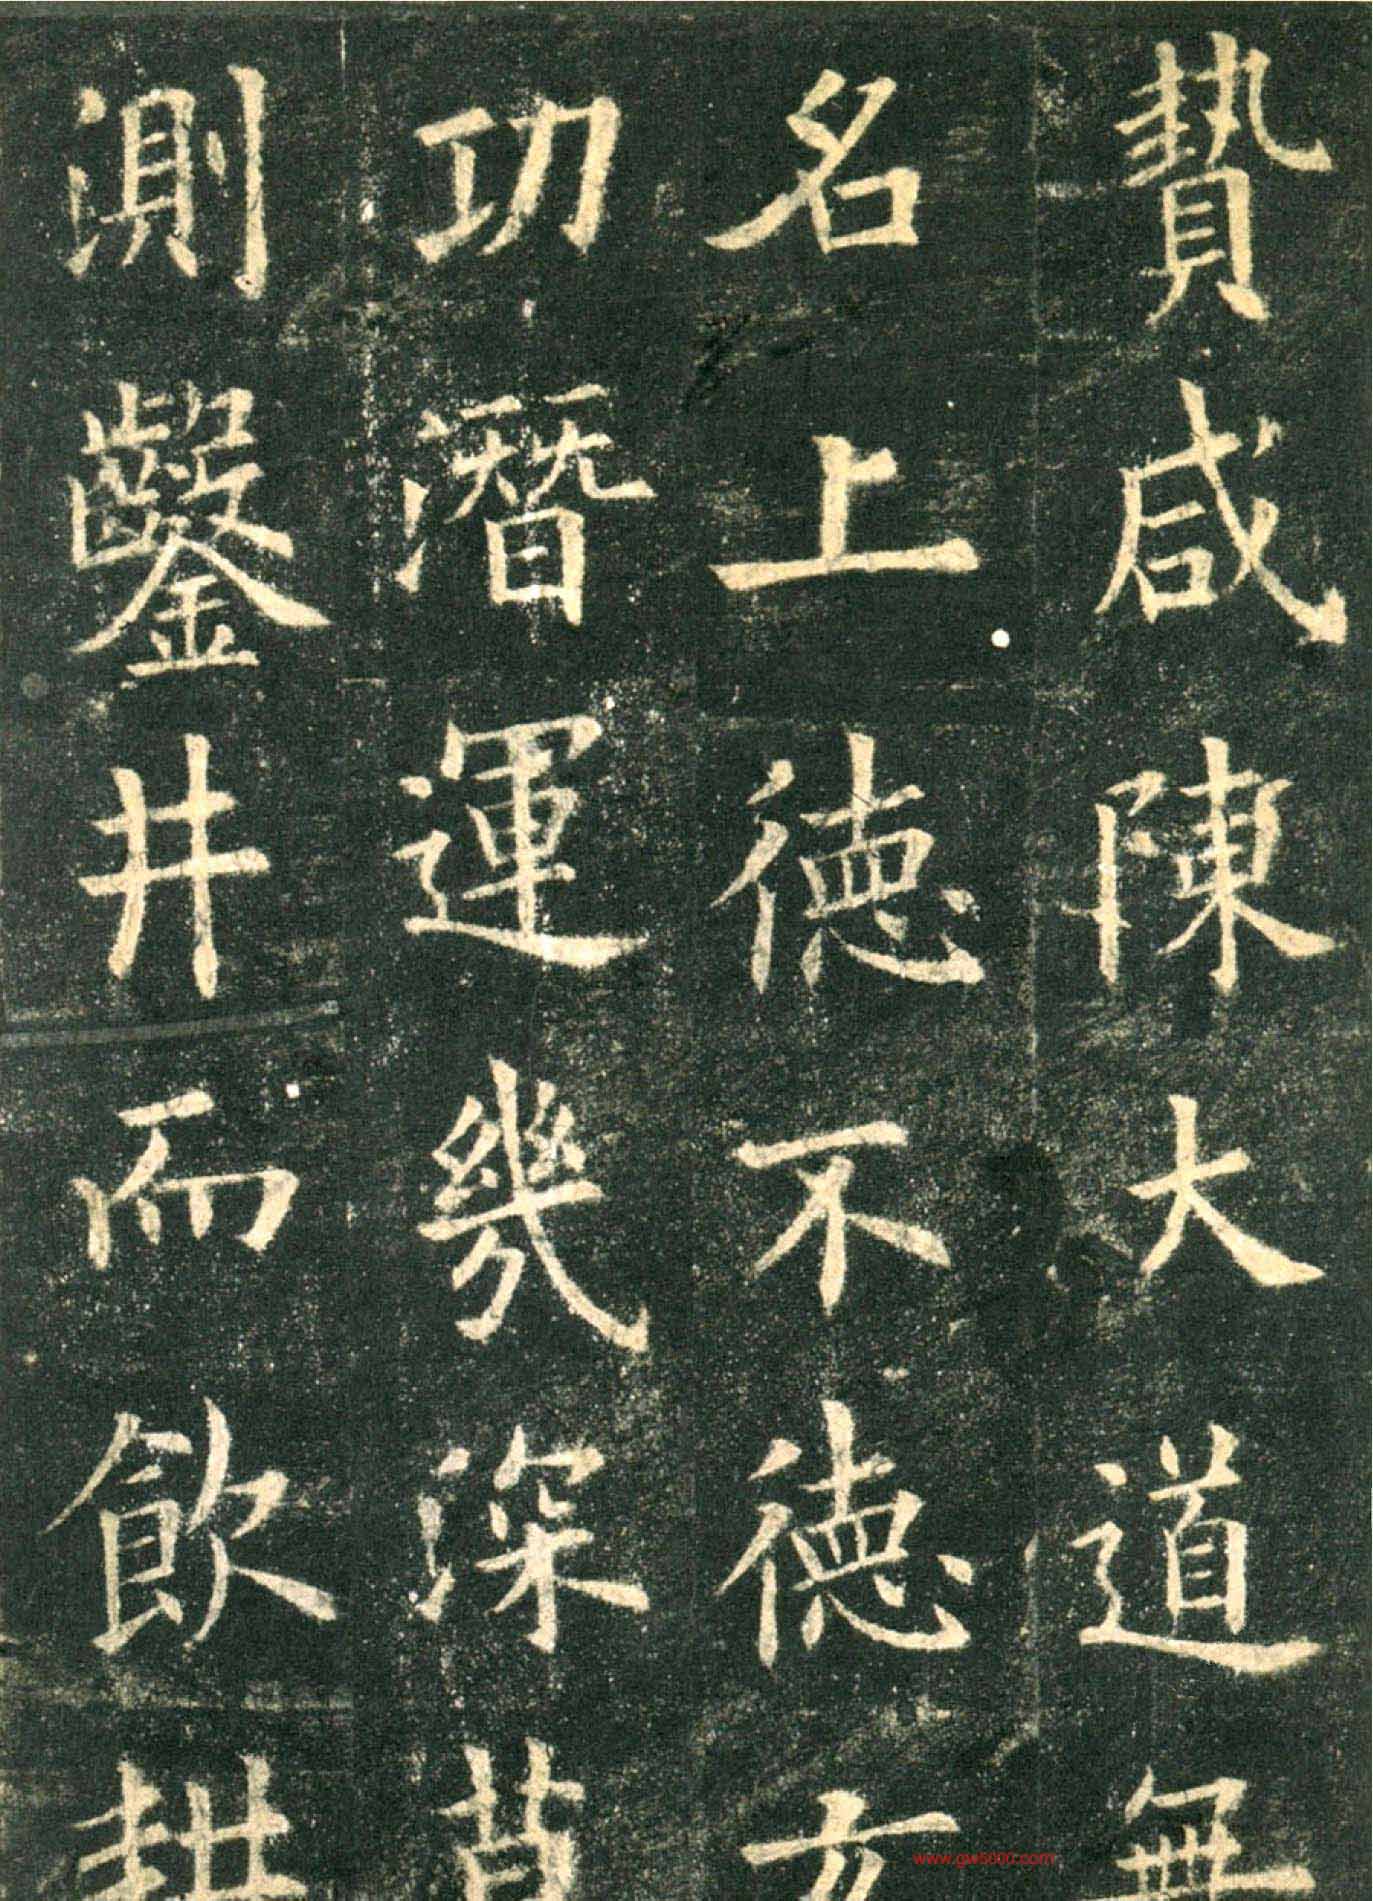 贄咸陳大道無
名上德不德玄
功潛運幾深莫
測鑿井而飲耕
www.gw5000.com